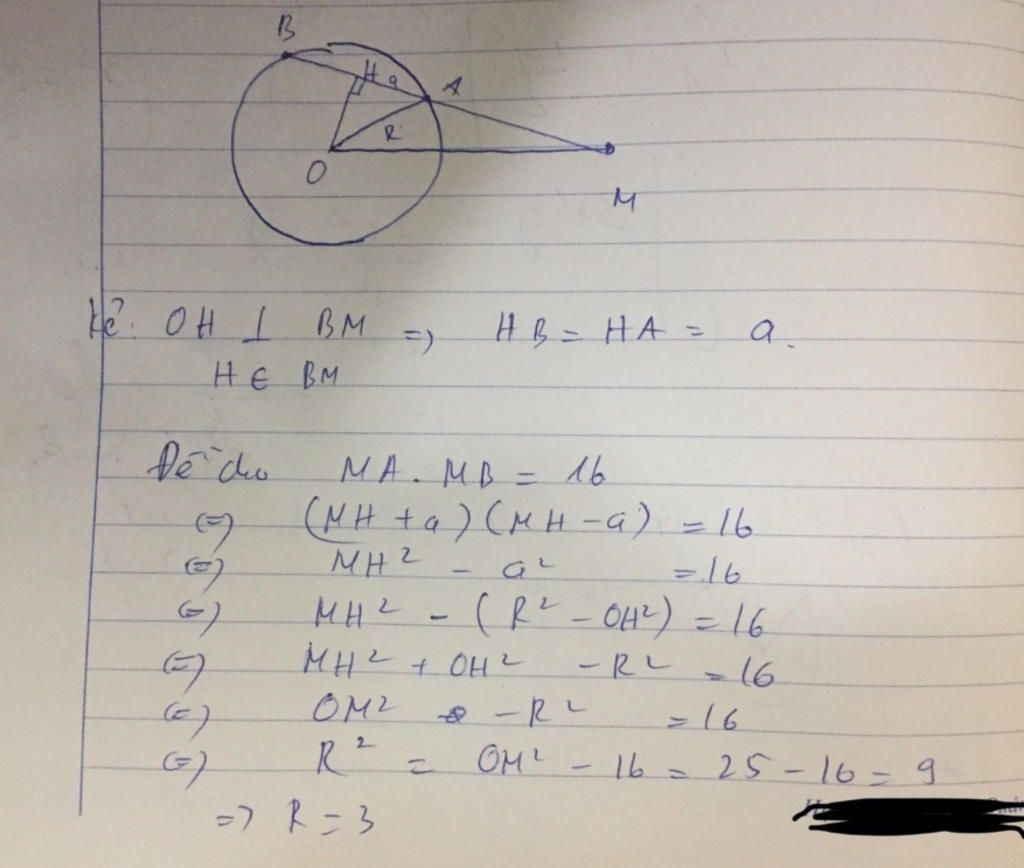 B
H a A
R
O
M
Kẻ: OH ⊥ BM => HB = HA = a.
H ∈ BM
Đề cho MA . MB = 16
(=) (MH + a)(MH - a) = 16
(=) MH² - a² = 16
(=) MH² - (R² - OH²) = 16
(=) MH² + OH² - R² = 16
(=) OM² - R² = 16
(=) R² = OM² - 16 = 25 - 16 = 9
=> R = 3